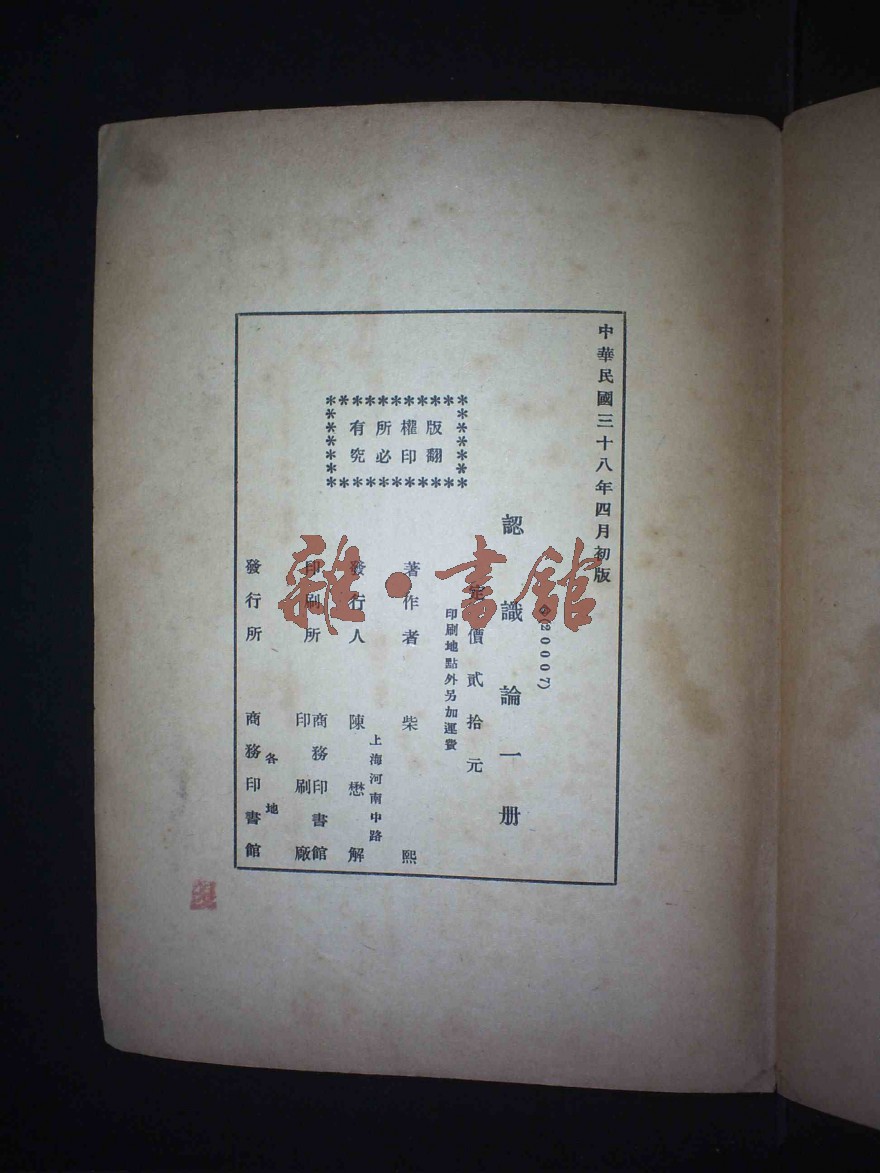 中華民國三十八年四月初版
(20007)
認識論一册
定價貳拾元
印刷地點外另加運費
版權所有
翻印必究
著作者 柴熙
上海河南中路
發行人 陳懋解
印刷所 商務印書館
印刷廠
各地
發行所 商務印書館
雜·書館